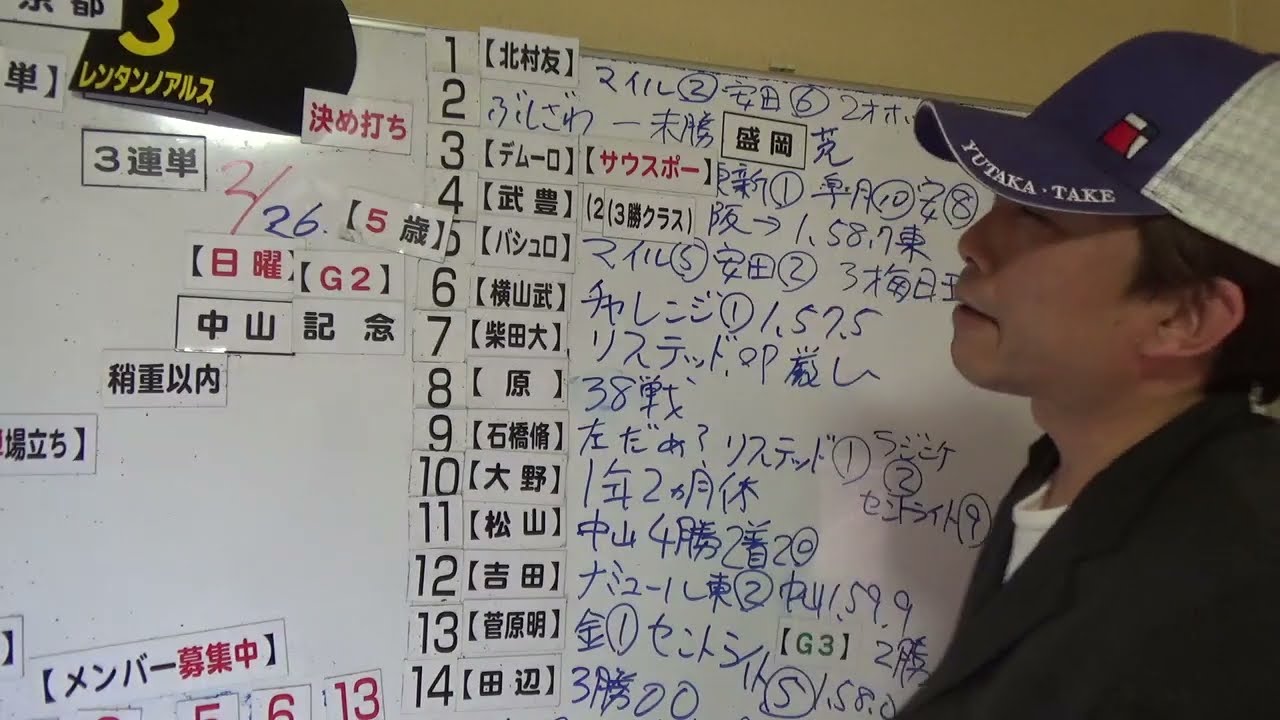 京都
3
レンタンノアルス
単】
決め打ち
3連単
2/26.
【5歳】
【日曜】【G2】
中山記念
稍重以内
場立ち】
【メンバー募集中】
5 6 13
1【北村友】マイル② 安田⑥ 2オホ
2 ぶしざわ 一未勝 盛岡 芝
3【デムーロ】【サウスポー】東新① 皐月⑩安⑧
4【武豊】(2(3勝クラス) 阪→1,58,7東
【バシュロ】マイル⑤安田②
6【横山武】チャレンジ①1,57,5
7【柴田大】リステッド、叩 厳し
8【原】38戦
9【石橋脩】左だめ? リステッド① ラジニケ②
セントライト⑨
10【大野】1年2ヵ月休
11【松山】中山4勝2着2回
12【吉田】ナミュール東② 中山1,59,9
13【菅原明】金① セントライト【G3】2勝
14【田辺】3勝00 ⑤1,58,0
YUTAKA・TAKE